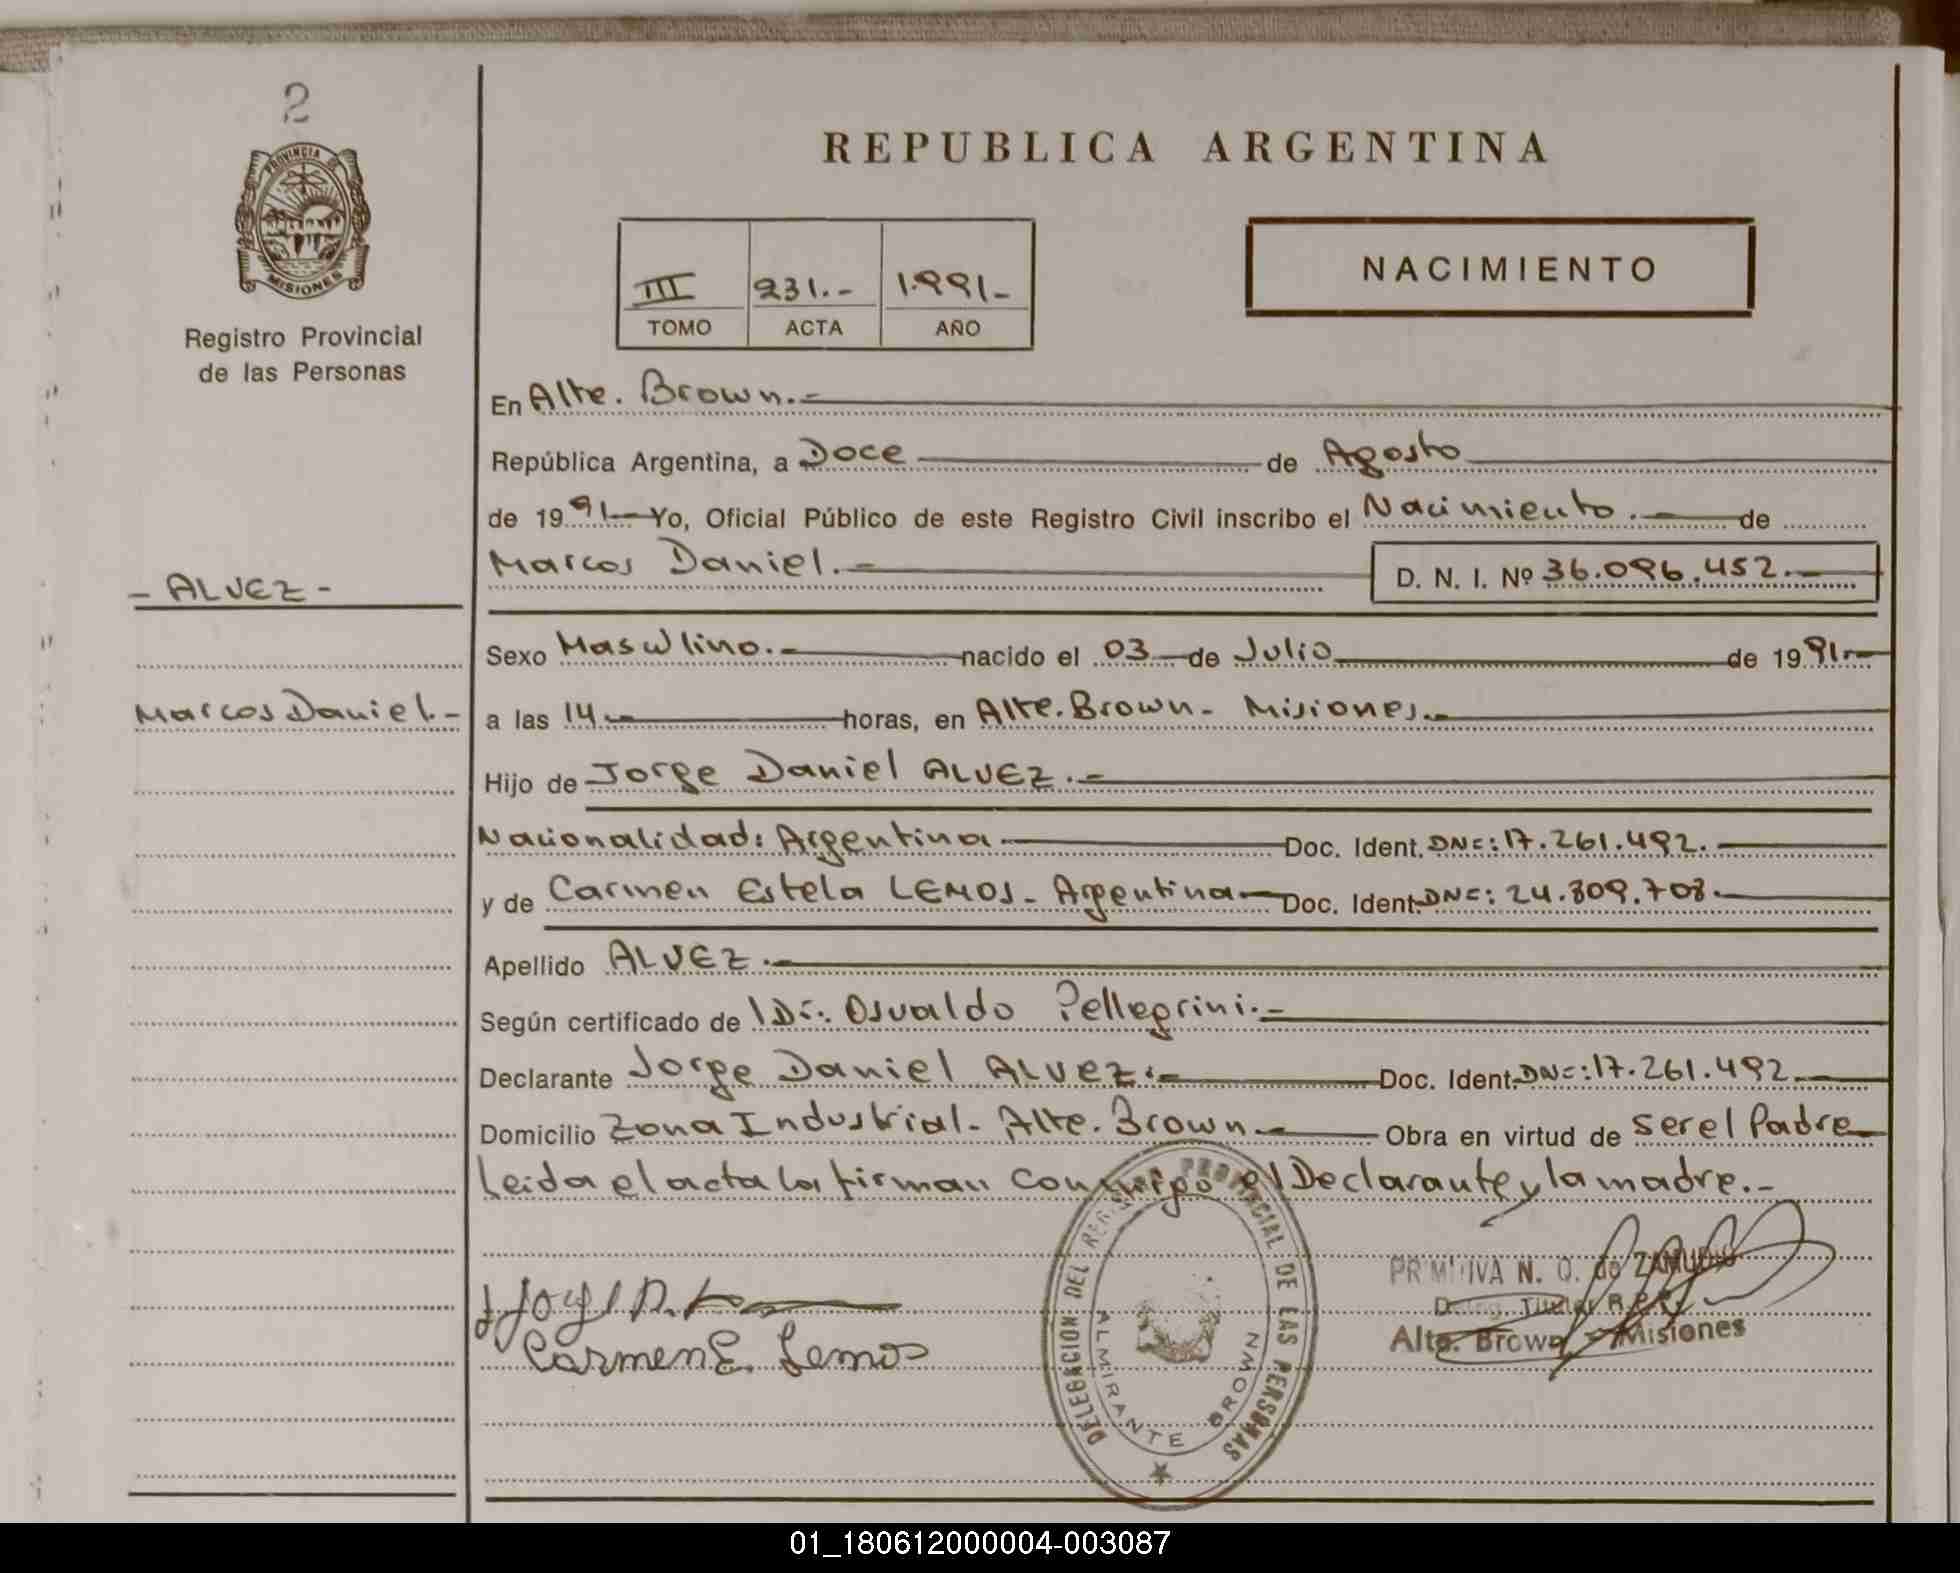 2
PROVINCIA DE
MISIONES
Registro Provincial
de las Personas
- ALVEZ -
Marcos Daniel.-
REPUBLICA ARGENTINA
III 231.- 1.991-
TOMO ACTA AÑO
NACIMIENTO
En Alte. Brown.-
República Argentina, a Doce de Agosto
de 1991- Yo, Oficial Público de este Registro Civil inscribo el Nacimiento.- de
Marcos Daniel.- D. N. I. Nº 36.096.452.-
Sexo Masculino.- nacido el 03 de Julio de 1991.-
a las 14.- horas, en Alte. Brown- Misiones.-
Hijo de Jorge Daniel ALVEZ.-
Nacionalidad: Argentina Doc. Ident. DNI: 17.261.492.-
y de Carmen Estela LEMOS- Argentina- Doc. Ident. DNI: 24.809.708.
Apellido ALVEZ.-
Según certificado de Dr. Osvaldo Pellegrini.-
Declarante Jorge Daniel ALVEZ.- Doc. Ident. DNI: 17.261.492.
Domicilio Zona Industrial- Alte. Brown.- Obra en virtud de ser el Padre
Leida el acta la firman conmigo el Declarante y la madre.-
PRIMITIVA N. O. de ZAMUDIO
Deleg. Titular R.P.P.
Alte. Brown - Misiones
Carmen E. Lemos
DELEGACION DEL REGISTRO PROVINCIAL DE LAS PERSONAS
ALMIRANTE BROWN
01_180612000004-003087